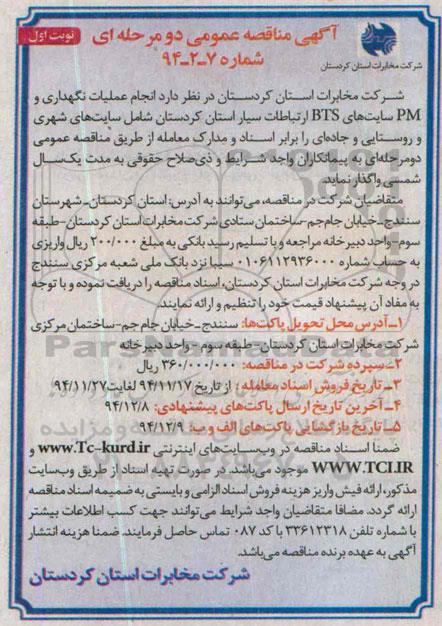 آگهی مناقصه عمومی دو مرحله ای
نوبت اول
شماره ۷-۲-۹۴
شرکت مخابرات استان کردستان
شرکت مخابرات استان کردستان در نظر دارد انجام عملیات نگهداری و
PM سایت‌های BTS ارتباطات سیار استان کردستان شامل سایت‌های شهری
و روستایی و جاده‌ای را برابر اسناد و مدارک معامله از طریق مناقصه عمومی
دومرحله‌ای به پیمانکاران واجد شرایط و ذی‌صلاح حقوقی به مدت یک‌سال
شمسی واگذار نماید.
متقاضیان شرکت در مناقصه، می‌توانند به آدرس: استان کردستان-شهرستان
سنندج-خیابان جام‌جم-ساختمان ستادی شرکت مخابرات استان کردستان-طبقه
سوم-واحد دبیرخانه مراجعه و با تسلیم رسید بانکی به مبلغ ۲۰۰/۰۰۰ ریال واریزی
به حساب شماره ۰۱۰۶۱۱۲۹۳۶۰۰۰ سیبا نزد بانک ملی شعبه مرکزی سنندج
در وجه شرکت مخابرات استان کردستان، اسناد مناقصه را دریافت نموده و با توجه
به مفاد آن پیشنهاد قیمت خود را تنظیم و ارائه نمایند.
۱-آدرس محل تحویل پاکت‌ها: سنندج-خیابان جام جم-ساختمان مرکزی
شرکت مخابرات استان کردستان-طبقه سوم - واحد دبیرخانه
۲-سپرده شرکت در مناقصه: ۳۶۰/۰۰۰/۰۰۰ ریال
۳- تاریخ فروش اسناد معامله : از تاریخ ۹۴/۱۱/۱۷ لغایت ۹۴/۱۱/۲۷
۴- آخرین تاریخ ارسال پاکت‌های پیشنهادی: ۹۴/۱۲/۸
۵- تاریخ بازگشایی پاکت‌های الف و ب: ۹۴/۱۲/۹
ضمنا اسناد مناقصه در وب‌سایت‌های اینترنتی www.Tc-kurd.ir و
WWW.TCI.IR موجود می‌باشد. در صورت تهیه اسناد از طریق وب‌سایت
مذکور، ارائه فیش واریز هزینه فروش اسناد الزامی و بایستی به ضمیمه اسناد مناقصه
ارائه گردد. مضافا متقاضیان واجد شرایط می‌توانند جهت کسب اطلاعات بیشتر
با شماره تلفن ۳۳۶۱۲۳۱۸ با کد ۰۸۷ تماس حاصل فرمایند. ضمنا هزینه انتشار
آگهی به عهده برنده مناقصه می‌باشد.
شرکت مخابرات استان کردستان